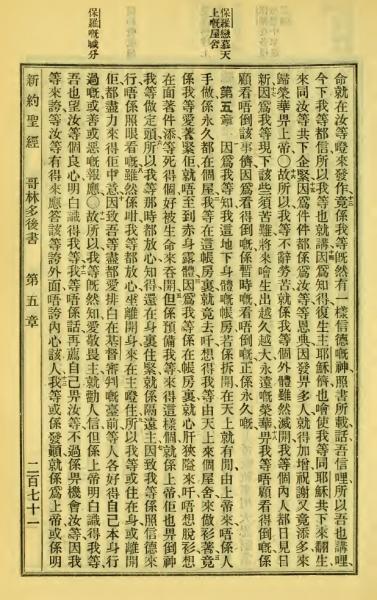 保羅戀慕天
上嘅屋舍
保羅嘅職分
命就在汝等燈來發作竟係我等旣然有一樣信德嘅神照書所載話吾信哩所以吾也講哩
今下我等都信所以我等也就講因爲知得復生主耶穌儕也噲使我等同耶穌共下來翻生
來同汝等共下企緊因爲件件都係爲汝等等恩典因發畀多人就得加增祝謝又竟添多來
歸榮華畀上帝〇故所以我等不辭勞苦就係我等個外體雖然滅開我等個內人都日見日
新因爲我等現下該些須苦難將來噲生出越久越大永遠嘅榮華畀我等唔顧看得倒嘅係
顧看唔倒該事儕因爲看得倒嘅係暫時嘅看唔倒嘅正係永久嘅
第五章 因爲我等知我這地下身體嘅帳房若係拆開在天上就有間由上帝來唔係人
手做係永久都在個屋我等在這帳房裏就竟去吀想得我等由天上來個屋舍來做衫著竟
係我等愛著緊佢就唔至到赤身露體因爲我等係在帳房裏就心肝狹隘來吀唔想脫衫想
在面著件添等死得個好被生命來吞開但係預備我等來得這樣個就係上帝佢也畀倒神
我等做定頭所以我等那時都放心知得還在身裏住緊就係隔遠主因致我等係照信德來
行唔係照眼看嘅雖然係咁我等都放心坐離開身來在主噔住所以我等或住在身或離開
佢都盡力來得佢中意因致吾等盡都愛排白在基督審判嘅臺前等人各好得自己本身行
過嘅或善或惡嘅報應〇故所以我等旣然知愛敬畏主就勸人信但係上帝明白識得我等
吾也望汝等個良心明白識得我等我等唔係話再薦自己畀汝等不過係畀機會汝等因我
等來誇等汝等有得來應答該等誇外面唔誇內心該人我等或係發顚就係爲上帝或係明
新約聖經 哥林多後書 第五章 二百七十一